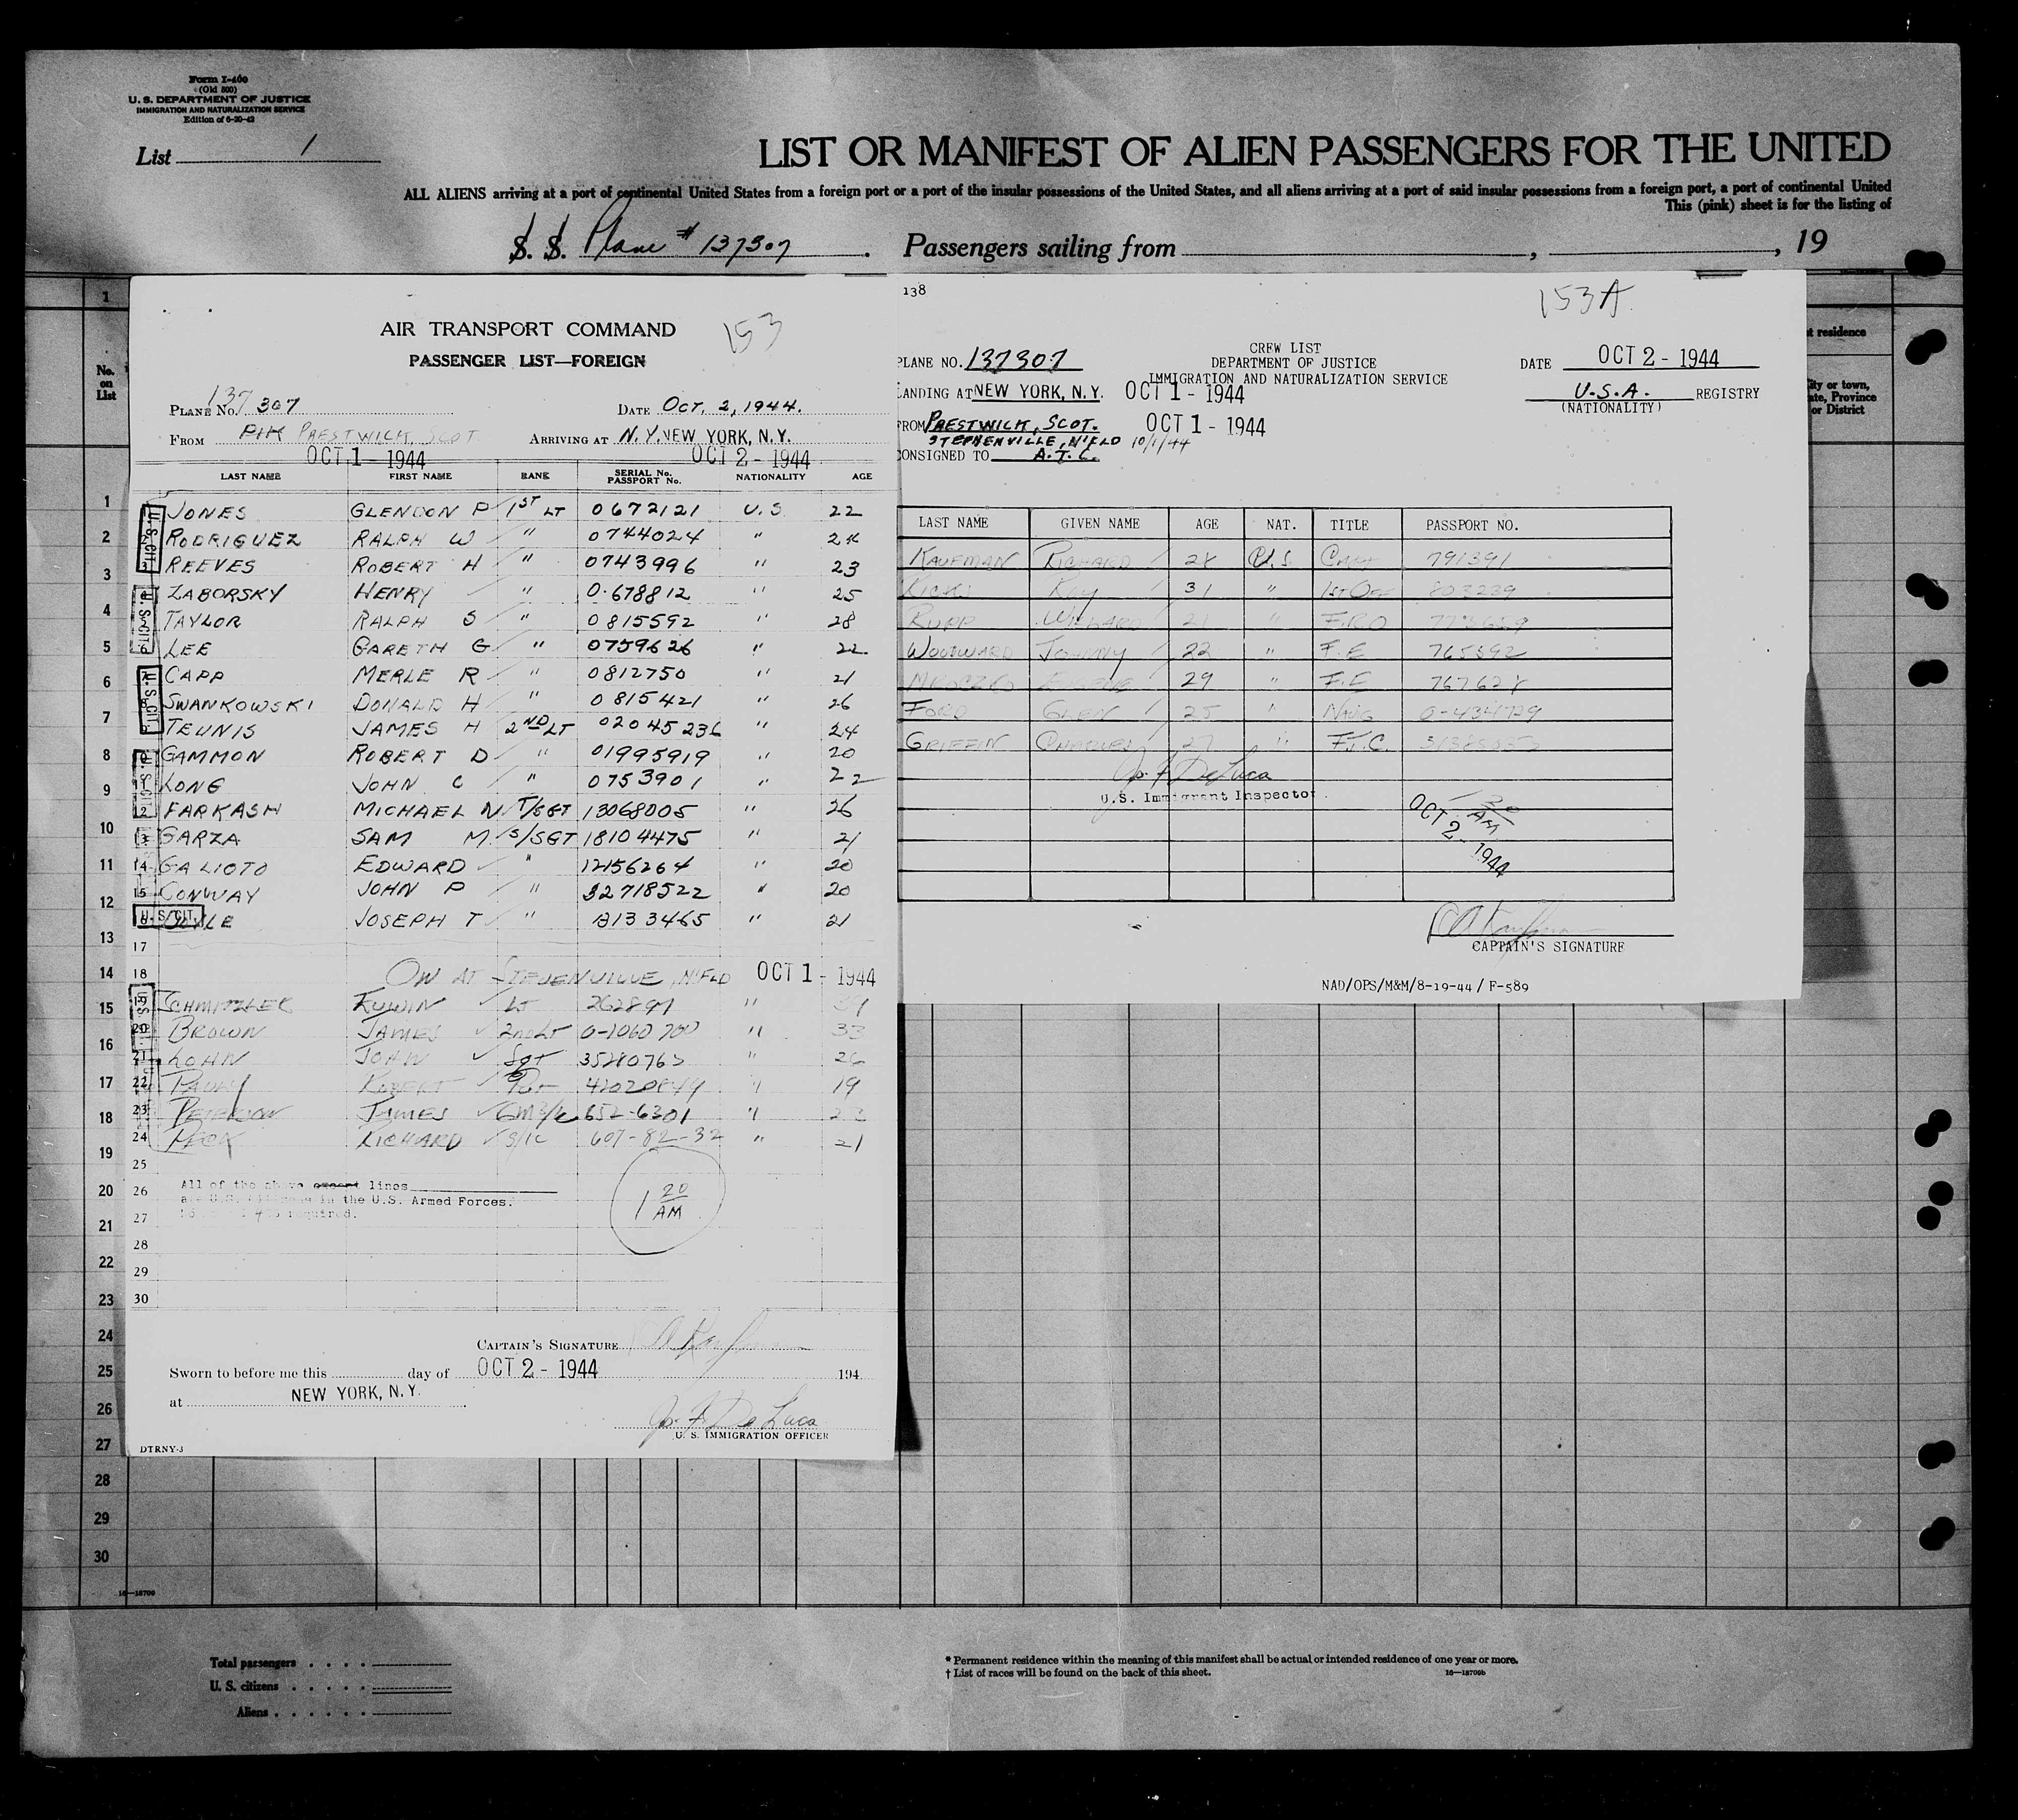 Form I-400
(Old 500)
U. S. DEPARTMENT OF JUSTICE
IMMIGRATION AND NATURALIZATION SERVICE
Edition of 6-20-42
List 1
LIST OR MANIFEST OF ALIEN PASSENGERS FOR THE UNITED
ALL ALIENS arriving at a port of continental United States from a foreign port or a port of the insular possessions of the United States, and all aliens arriving at a port of said insular possessions from a foreign port, a port of continental United
This (pink) sheet is for the listing of
S. S. Plane # 137307 . Passengers sailing from , , 19
No. on List
AIR TRANSPORT COMMAND 153
PASSENGER LIST—FOREIGN
PLANE No. 137 307 DATE OCT. 2, 1944.
FROM PIK PRESTWICK, SCOT. ARRIVING AT N.Y. NEW YORK, N.Y.
OCT 1 - 1944 OCT 2 - 1944
LAST NAME FIRST NAME RANK SERIAL No. PASSPORT No. NATIONALITY AGE
JONES GLENDON P 1ST LT 0672121 U.S. 22
RODRIGUEZ RALPH W " 0744024 "
REEVES ROBERT H " 0743996 " 23
ZABORSKY HENRY " 0-678812 " 25
TAYLOR RALPH S " 0815592 " 28
LEE GARETH G " 0759626 " 22
CAPP MERLE R " 0812750 " 21
SWANKOWSKI DONALD H " 0815421 " 26
TEUNIS JAMES H 2ND LT " 24
GAMMON ROBERT D " 01995919 " 20
LONG JOHN C " 0753901 " 22
FARKASH MICHAEL N T/SGT 13068005 " 26
13 GARZA SAM M. S/SGT 18104475 " 21
14 GALIOTO EDWARD " 12156264 " 20
15 CONWAY JOHN P " 32718522 " 20
U. S. CIT. JOSEPH T " " 21
17
18 ON AT STEVENVILLE, N'FLD OCT 1 - 1944
19 LT 262897 "
20 BROWN JAMES 2nd LT 0-1060700 " 33
21 JOHN Sgt "
22 ROBERT " 19
23 JAMES 652-6301 "
24 RICHARD S/1C 607-82-32 " 21
25
26 All of the above except lines
are U.S. Citizens in the U.S. Armed Forces.
27 required.
1 20 AM
28
29
30
CAPTAIN'S SIGNATURE
Sworn to before me this day of OCT 2 - 1944 194
at NEW YORK, N.Y.
Jos. F. De Luca
U. S. IMMIGRATION OFFICER
DTRNY-3
138 153A
CREW LIST
PLANE NO. 137307 DEPARTMENT OF JUSTICE DATE OCT 2 - 1944
IMMIGRATION AND NATURALIZATION SERVICE
LANDING AT NEW YORK, N.Y. OCT 1 - 1944 U.S.A. REGISTRY
(NATIONALITY)
FROM PRESTWICK, SCOT. OCT 1 - 1944
STEPHENVILLE, N'FLD 10/1/44
CONSIGNED TO A.T.C.
LAST NAME GIVEN NAME AGE NAT. TITLE PASSPORT NO.
KAUFMAN RICHARD 28 U.S. CAPT 791391
RICKS RAY 31 " 1ST OFF 803239
RUPP WILLARD 21 " F.R.O
WOODWARD JOHNNY 22 " F.E 765892
29 " F.E 767628
FORD GLEN 25 " NAVG 0-434729
GRIFFIN CHARLES 27 " F.T.C.
Jos. F. De Luca
U.S. Immigrant Inspector
AM
OCT 2 - 1944
CAPTAIN'S SIGNATURE
NAD/OPS/M&M/8-19-44/ F-589
t residence
ity or town,
ate, Province
or District
1
2
3
4
5
6
7
8
9
10
11
12
13
14
15
16
17
18
19
20
21
22
23
24
25
26
27
28
29
30
16—18709
Total passengers
U. S. citizens
Aliens
* Permanent residence within the meaning of this manifest shall be actual or intended residence of one year or more.
† List of races will be found on the back of this sheet. 16—18709b